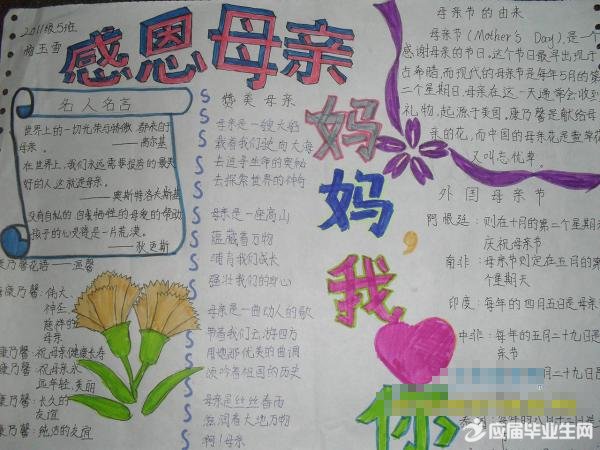 2011级5班
感恩母亲
名人名言
世界上的一切光荣与骄傲,都来自于
母亲。
——高尔基
在世界上,我们永远需要报答的最美
好的人这就是母亲。
——奥斯特洛夫斯基
没有自私的 自我牺牲性的母爱的帮助
孩子的心灵将是一片荒漠。
——狄更斯
康乃馨花语——温馨
康乃馨:伟大、
神圣、
慈祥的
母亲
康乃馨:祝母亲健康长寿
康乃馨:祝母亲永
远年轻、美丽
康乃馨:长久的
友谊
康乃馨:纯洁的友谊
赞美母亲
母亲是一艘大船
载着我们驶向大海
去追寻生命的奥秘
去探索世界的神奇
母亲是一座高山
蕴藏着万物
哺育我们成长
强壮我们的身心
母亲是一曲动人的歌
带着我们云游四方
用她那优美的曲调
咏吟着祖国的历史
母亲是丝丝春雨
滋润着大地万物
啊!母亲
妈妈,我
你
母亲节的由来
母亲节(Mother's Day),是一个
感谢母亲的节日。这个节日最早出现于
古希腊,而现代的母亲节是每年5月的第
二个星期日,母亲在这一天通常会收到
礼物,起源于美国,康乃馨是献给母
亲的花,而中国的母亲花是萱草花
又叫忘忧草。
外国母亲节
阿根廷:则在十月的第二个星期天
庆祝母亲节
南非:母亲节则定在五月的第
个星期天
印度:每年的四月五日是母亲节
中非:每年的五月二十九日是母
亲节
每年的五月二十九日是
每年八月十二日是
应届毕业生网